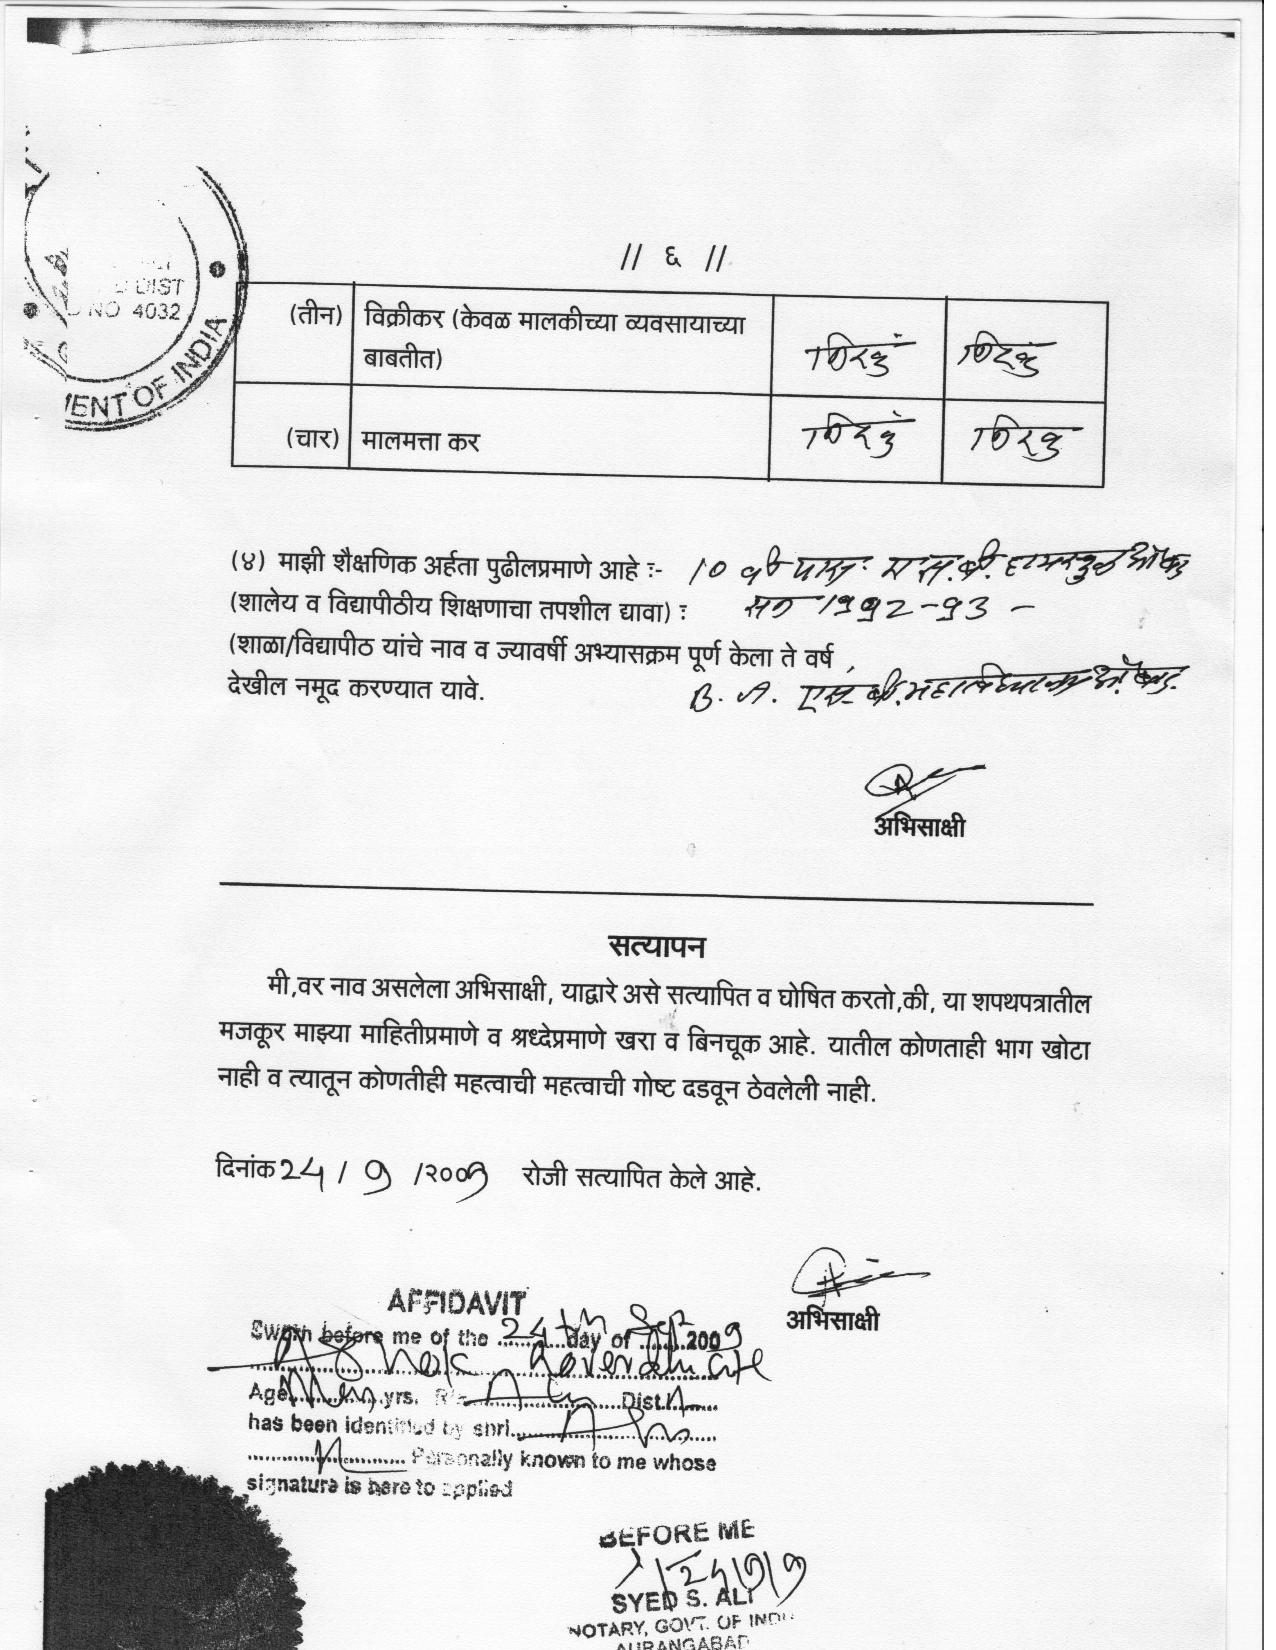 DIST
NO 4032
MENT OF INDIA
// ६ //
(तीन) विक्रीकर (केवळ मालकीच्या व्यवसायाच्या
बाबतीत) निरंक निरंक
(चार) मालमत्ता कर निरंक निरंक
(४) माझी शैक्षणिक अर्हता पुढीलप्रमाणे आहे :- 10 वी पास
(शालेय व विद्यापीठीय शिक्षणाचा तपशील द्यावा) : सन १९९२-९३ -
(शाळा/विद्यापीठ यांचे नाव व ज्यावर्षी अभ्यासक्रम पूर्ण केला ते वर्ष,
देखील नमूद करण्यात यावे. B. A. एस.बी. महाविद्यालय
अभिसाक्षी
सत्यापन
मी,वर नाव असलेला अभिसाक्षी, याद्वारे असे सत्यापित व घोषित करतो,की, या शपथपत्रातील
मजकूर माझ्या माहितीप्रमाणे व श्रध्देप्रमाणे खरा व बिनचूक आहे. यातील कोणताही भाग खोटा
नाही व त्यातून कोणतीही महत्वाची महत्वाची गोष्ट दडवून ठेवलेली नाही.
दिनांक 24 / 9 /२००९ रोजी सत्यापित केले आहे.
अभिसाक्षी
AFFIDAVIT
Sworn before me of the 24th day of Sep 2009
Age yrs. R/o Dist.
has been identified by shri.
Personally known to me whose
signature is here to applied
BEFORE ME
24/9/9
SYED S. ALI
NOTARY, GOVT. OF INDIA
AURANGABAD